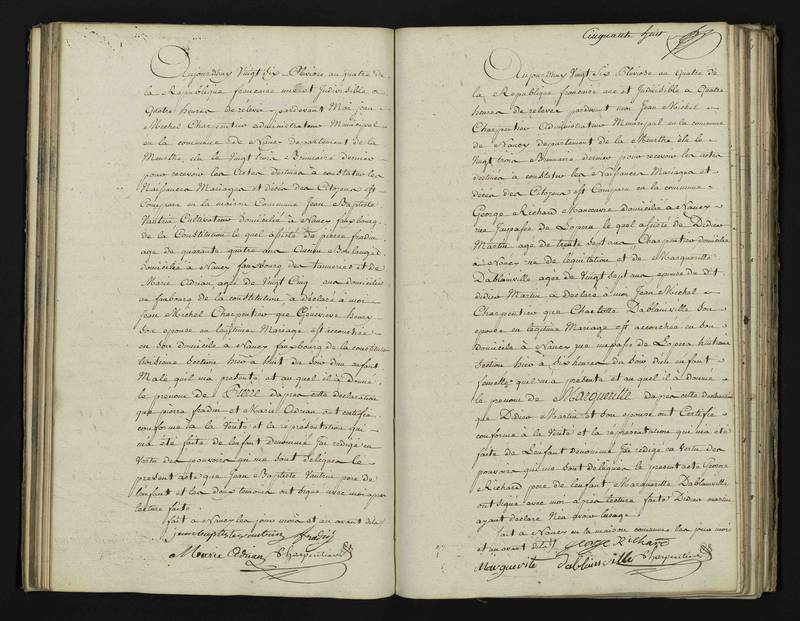 Aujourd'huy Vingt Six Pluviose an quatre de
la République francaise une et Indivisible a
Quatre heures de relevée pardevant Moi jean
Michel Charpentier administrateur Municipal
en la commune de Nancy departement de la
Meurthe élu le Vingt trois Brumaire dernier
pour recevoir les Actes destinés a constater les
Naissances Mariages et décès des Citoyens est
Comparu en la maison Commune Jean Baptiste
Cultivateur domicilié à Nancy fauxbourg
de la Constitution lequel assisté de pierre fradin
agé de quarante quatre ans Boulanger
domicilié a Nancy fauxbourg des tanneries et de
Marie Adrian agée de Vingt Cinq ans domiciliée
au fauxbourg de la constitution à déclaré à moi
Jean Michel Charpentier que Genevieve henry
Son epouse en legitime Mariage est accouchée
en Son domicile à Nancy fauxbourg de la constitution
section hier à huit du Soir d'un enfant
Male quil m'a présenté et au quel il à donné
le prénom de dapres cette déclaration
que pierre fradin et Marie Adrian a certifié
conforme à la Vérité et la représentation qui
m'a été faite de lenfant denommé J'ai rédigé en
Vertu des pouvoirs qui me sont délégués le
présent acte que Jean Baptiste pere de
lenfant et les deux témoins ont signé avec moi apres
lecture faite
fait à Nancy les jour mois et an avant dits
jean baptiste fradin
Marie Adrian Charpentier
Cinquante huit
Aujourd'huy Vingt Six Pluviose an Quatre de
la République francaise une et Indivisible a Quatre
heures de relevée pardevant moi Jean Michel
Charpentier Administrateur Municipal en la commune
de Nancy departement de la Meurthe élu le
Vingt trois Brumaire dernier pour recevoir les actes
destinés a constater les Naissances Mariages et
décès des Citoyens est Comparu en la commune
George Richard Manoeuvre domicilié a Nancy
rue de Lopera lequel assisté de Didier
Martin agé de trente sept ans Charpentier domicilié
à Nancy rue de législation et de Marguerite
Dablainville agée de Vingt sept ans epouse de dit
didier Martin a déclaré à moi Jean Michel
Charpentier que Charlotte Dablainville Son
epouse en legitime Mariage est accouchée en Son
domicile à Nancy rue de Lopera huitieme
section hier à Six heures du Soir d'un enfant
femelle quil m'a présenté et au quel il a donné
le prénom de Marguerite dapres cette déclaration
que Didier Martin et Son epouse ont Certifié
conforme à la Vérité et la représentation qui m'a été
faite de L'enfant denommé J'ai rédigé en Vertu des
pouvoirs qui me sont délégués le present acte George
Richard pere de lenfant Marguerite Dablainville
ont signé avec moi après lecture faite Didier martin
ayant déclaré N'en avoir lusage
fait à Nancy en la maison commune les jour mois
et an avant dits George Richard
Marguerite Dablainville Charpentier